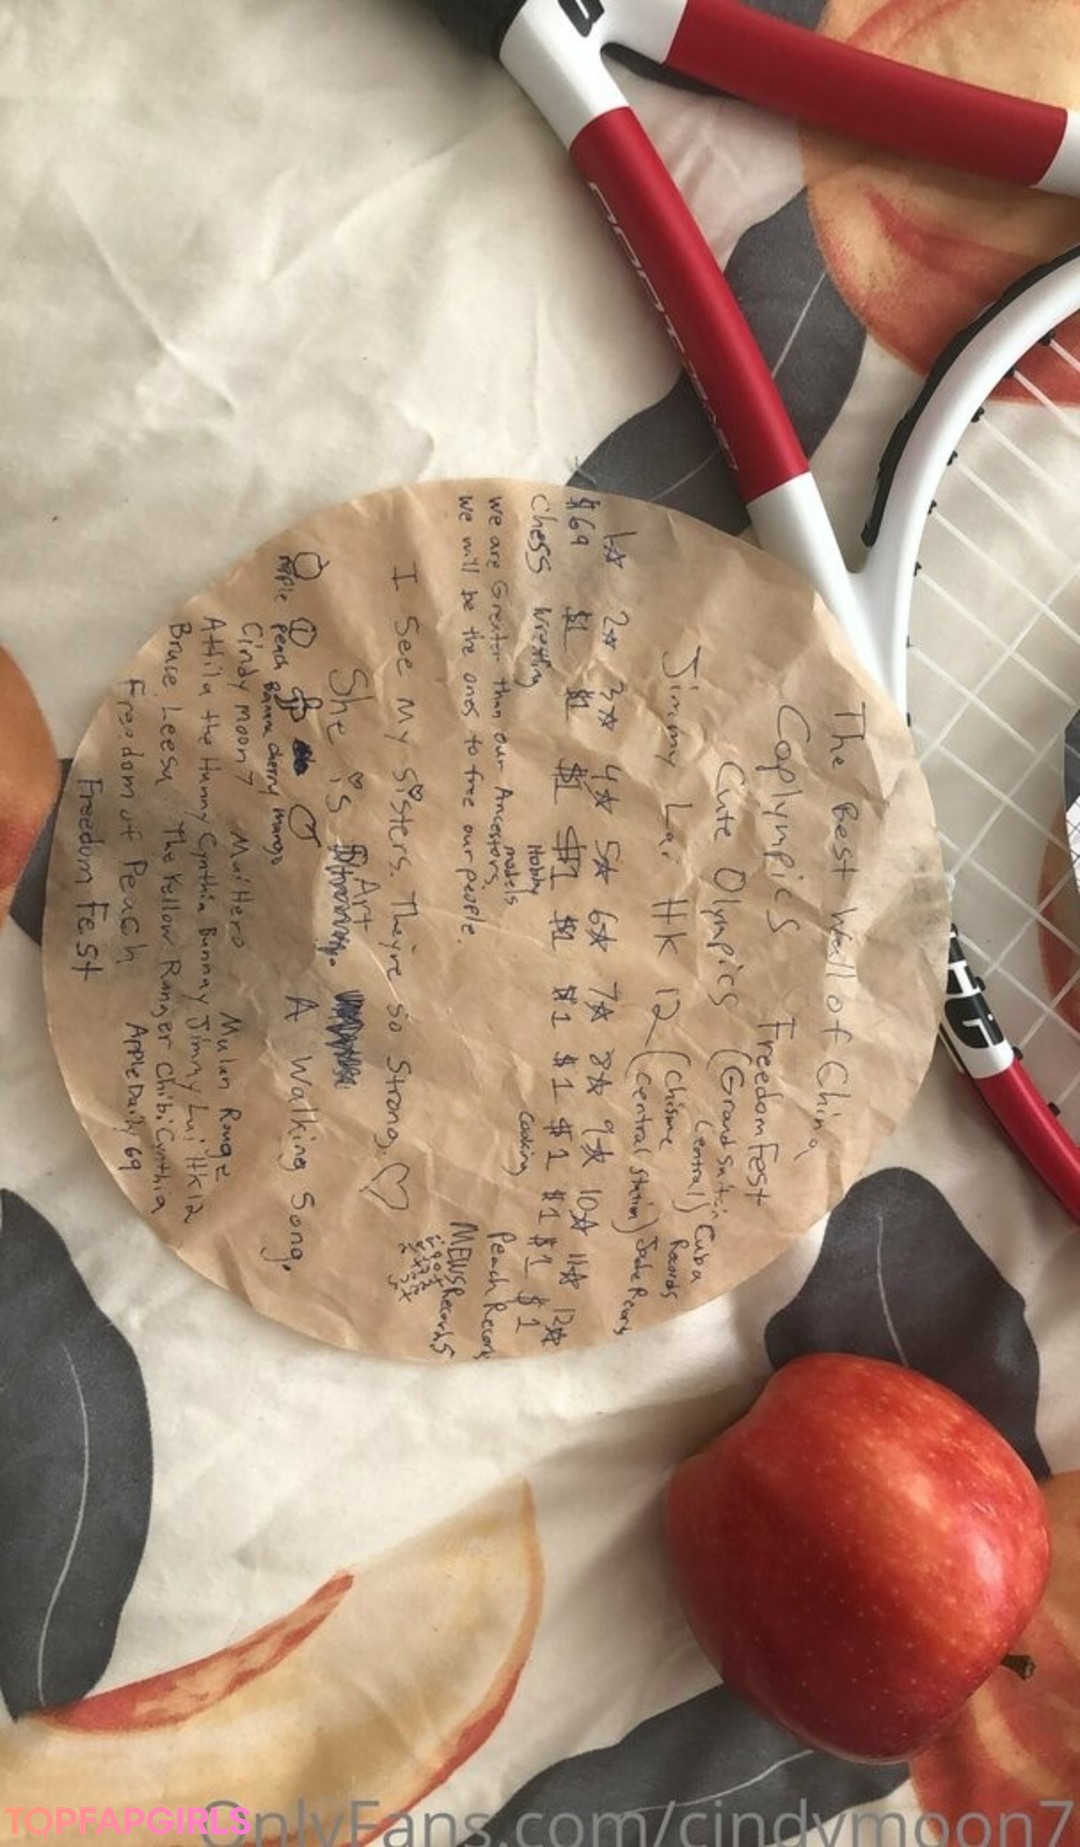 The Best Wall of China
Coplympics Freedom Fest
Cute Olympics (Grand Central) Cuba Records
Jimmy Lai HK 12 (Chisme Central Station) Jade Records
1☆ 2☆ 3☆ 4☆ 5☆ 6☆ 7☆ 8☆ 9☆ 10☆ 11☆ 12☆
$69 $1 $1 $1 $1 $1 $1 $1 $1 $1 $1 $1
Chess Wrestling Hobby models Cooking Peach Records
we are Greater than our Ancestors.
we will be the ones to free our people.
MEWS Records
I see my sisters. They're so strong ♡
She is Art
A Walking Song.
Apple peach Banana cherry mango
Cindy moon7 Muihero Mulan Rouge
Attila the Hunny Cynthia Bunnay Jimmy Lai HK12
Bruce Leesa The Yellow Ranger Chibi Cynthia
Freedom of Peach Apple Daily 69
Freedom Fest
TOPFAPGIRLS
OnlyFans.com/cindymoon7